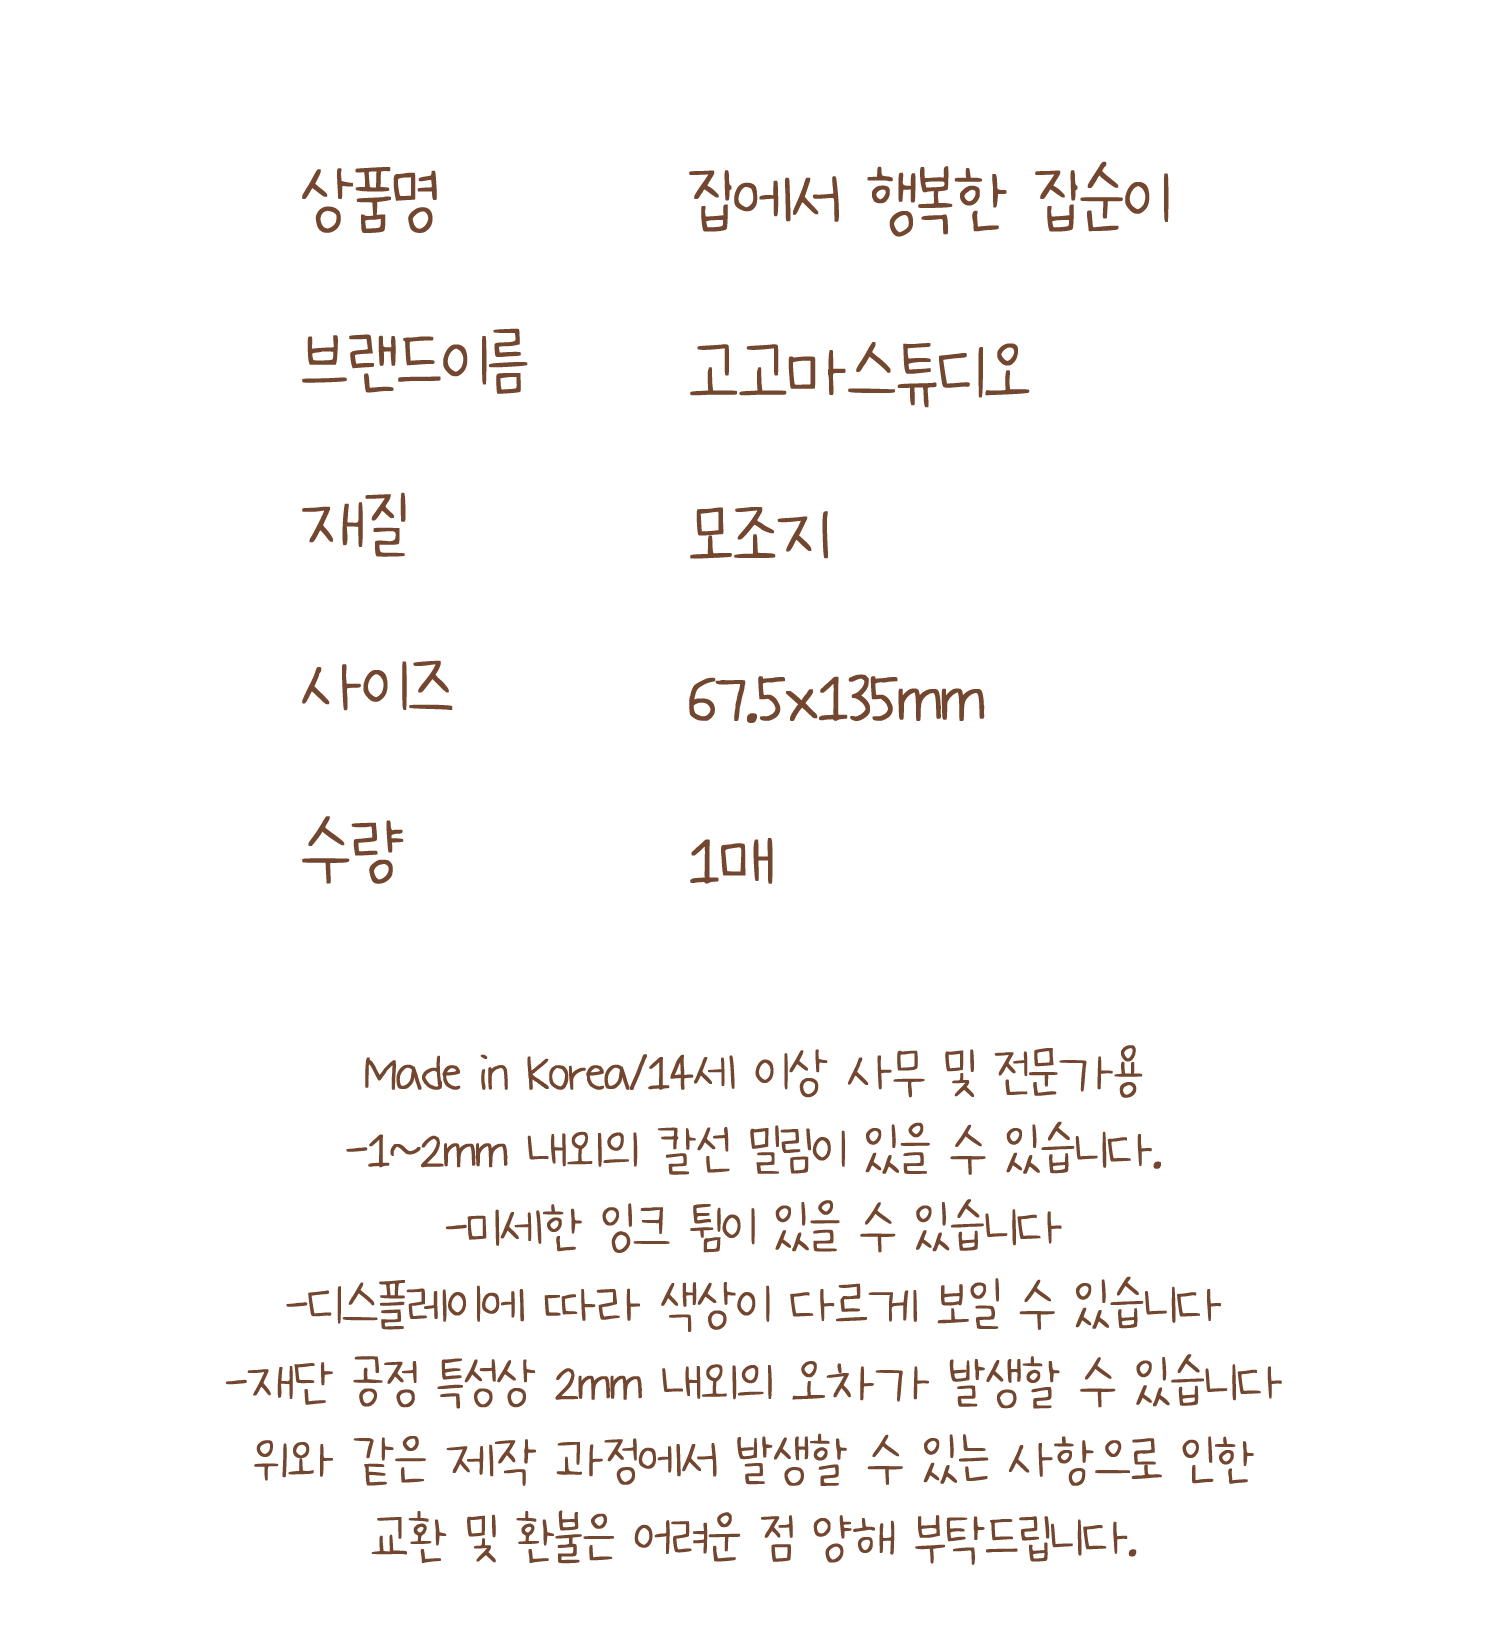 상품명 집에서 행복한 집순이
브랜드이름 고고마스튜디오
재질 모조지
사이즈 67.5x135mm
수량 1매
Made in Korea/14세 이상 사무 및 전문가용
-1~2mm 내외의 칼선 밀림이 있을 수 있습니다.
-미세한 잉크 튐이 있을 수 있습니다
-디스플레이에 따라 색상이 다르게 보일 수 있습니다
-재단 공정 특성상 2mm 내외의 오차가 발생할 수 있습니다
위와 같은 제작 과정에서 발생할 수 있는 사항으로 인한
교환 및 환불은 어려운 점 양해 부탁드립니다.